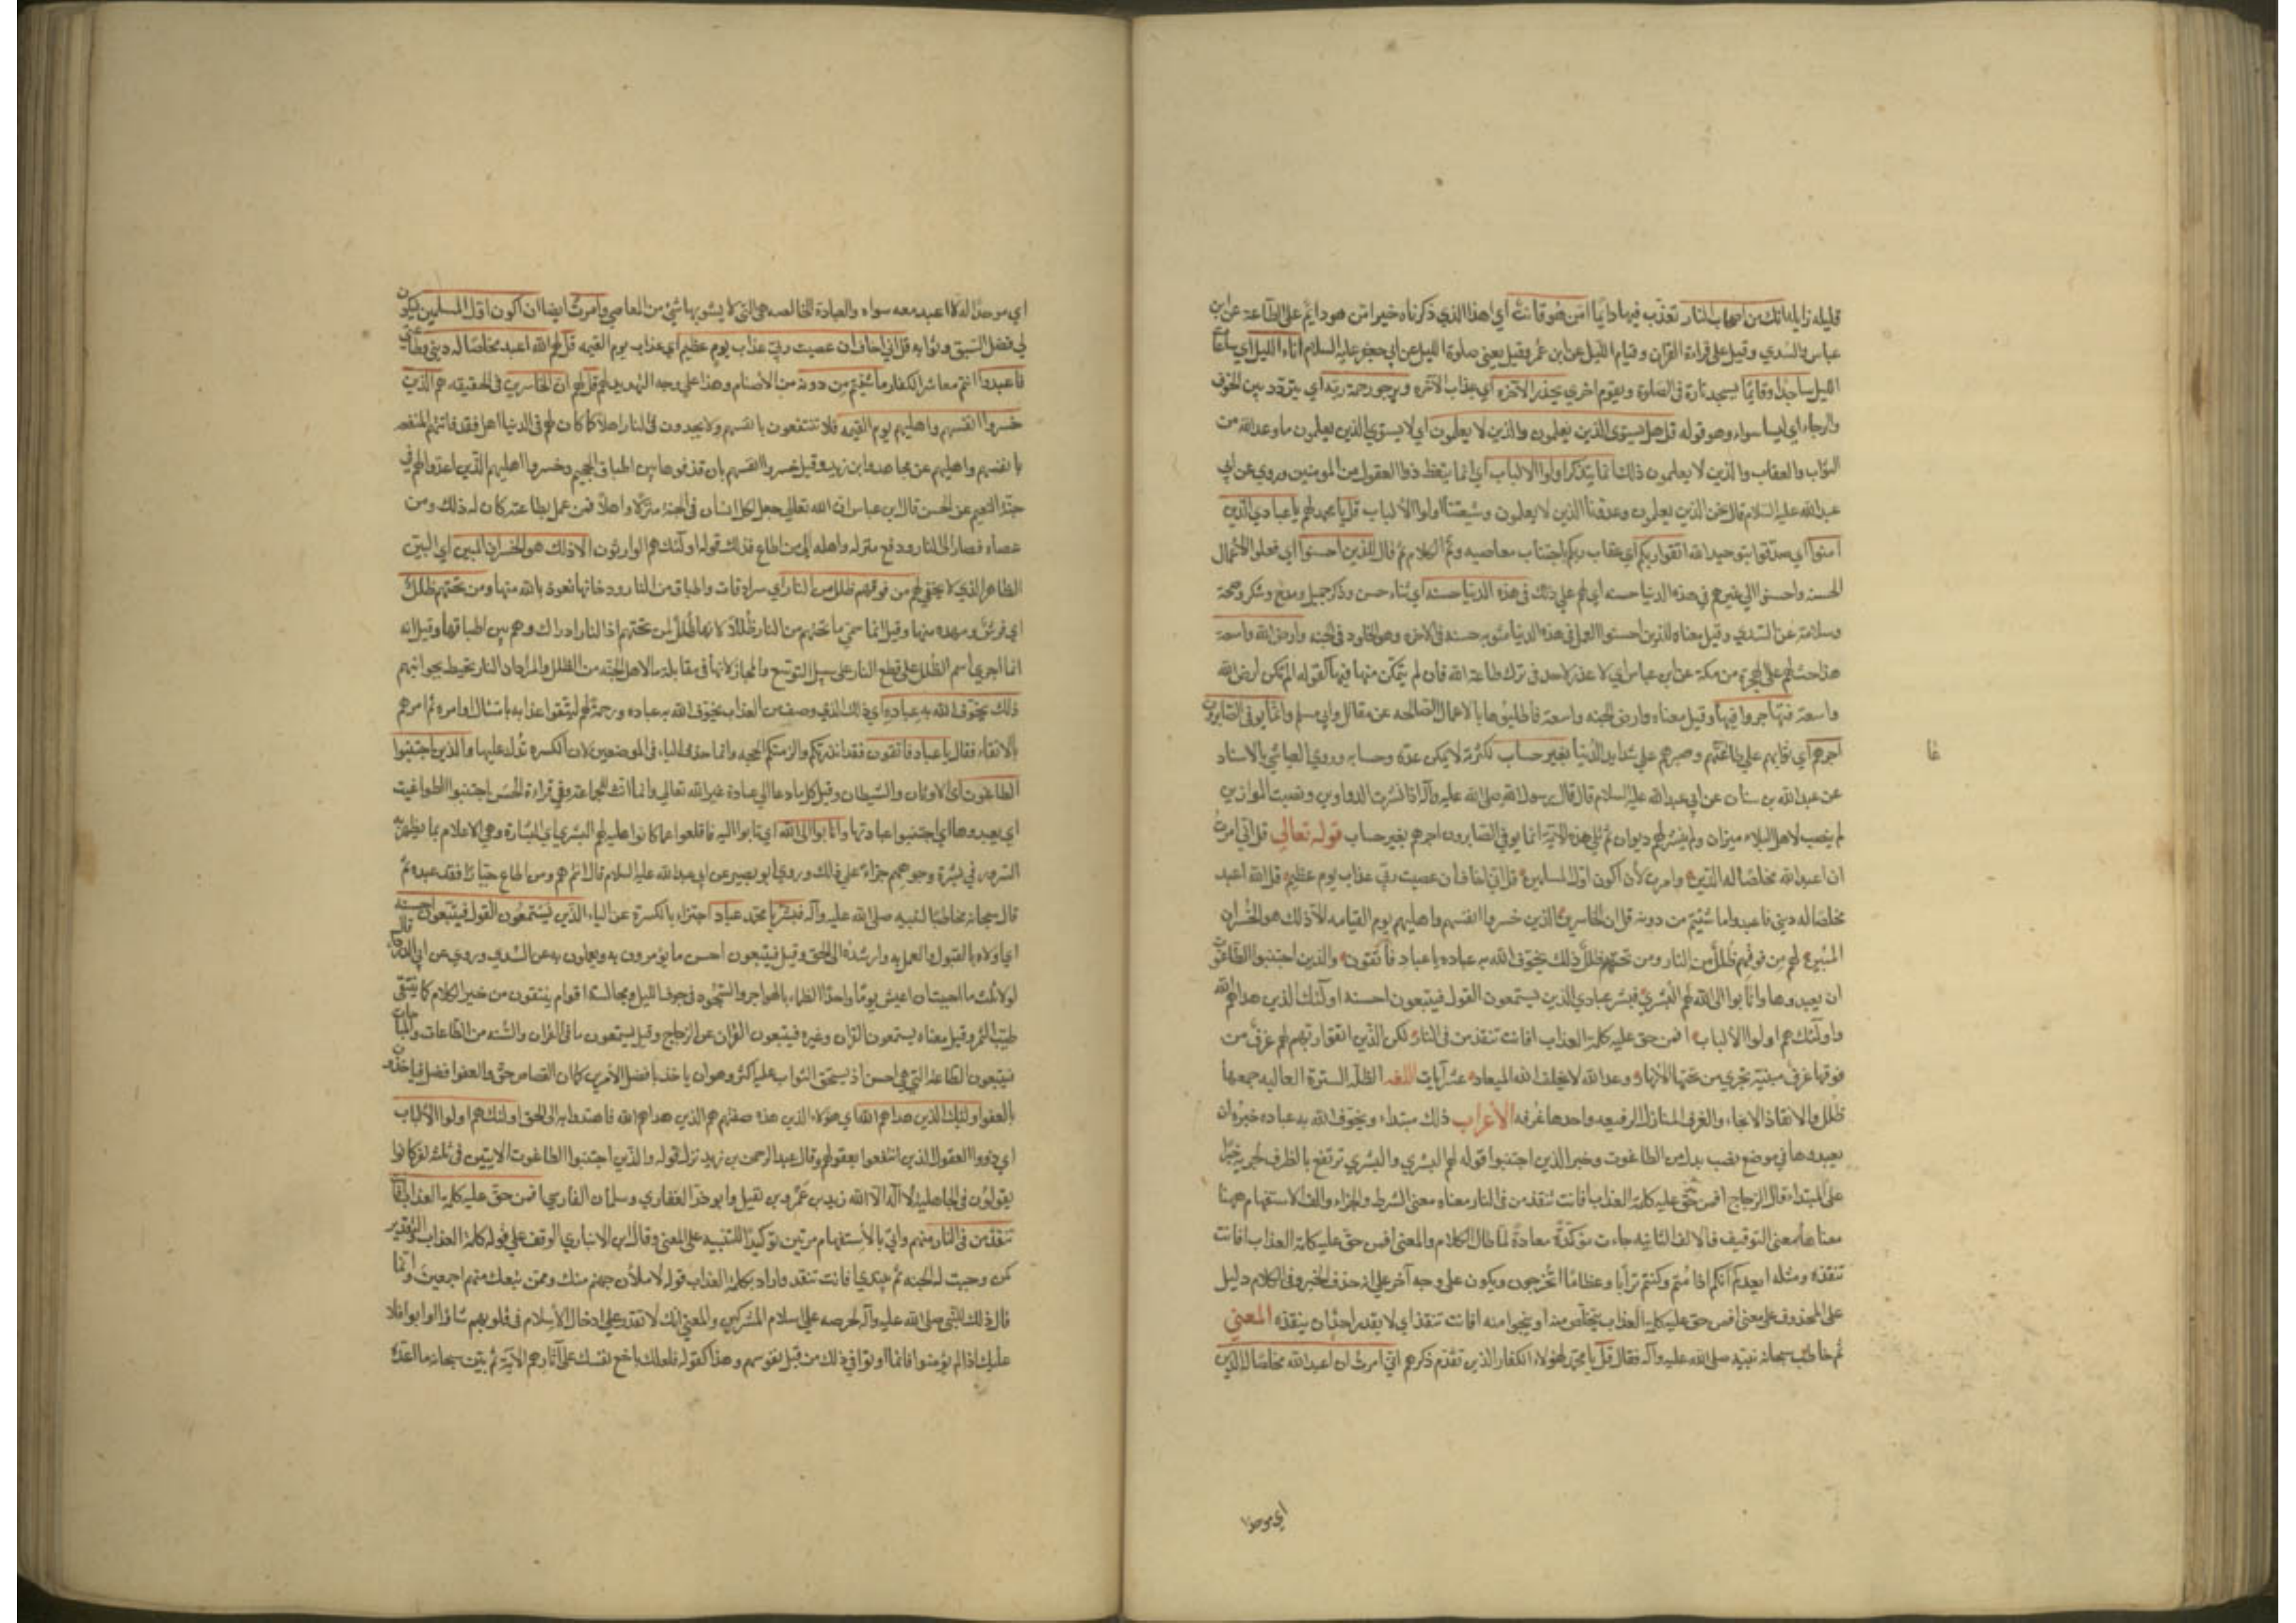 قليله زايله انك من اصحاب النار تعذب فيها دايمًا امن هو قانت أي اهذا الذي ذكرناه خير امن هو دايم على الطاعة عن ابن
عباس والسدي وقيل على قراءة القرآن وقيام الليل عن ابن عمر وقيل يعني صلوة الليل عن ابي جعفر عليه السلام آناء الليل اي ساعات
الليل ساجدا وقائمًا يسجد تارة في الصلوة ويقوم اخري يحذر الآخرة اي عذاب الآخره ويرجو رحمة ربه اي يتردد بين الخوف
والرجاء اي ليسا سواء وهو قوله قل هل يستوي الذين يعلمون والذين لا يعلمون أي لا يستوي الذين يعلمون ما وعد الله من
الثواب والعقاب والذين لا يعلمون ذلك انما يتذكر اولوا الالباب أي انما يتعظ ذوا العقول من المومنين وروي عن ابي
عبد الله عليه السلام قال نحن الذين يعلمون وعدونا الذين لا يعلمون وشيعتنا اولوا الألباب قل يا محمد لهم يا عبادي الذين
آمنوا أي صدقوا بتوحيد الله اتقوا ربكم اي عقاب ربكم باجتناب معاصيه وتم الكلام ثم قال للذين احسنوا اي فعلوا الأعمال
الحسنة واحسنوا الي غيرهم في هذه الدنيا حسنه اي لهم علي ذلك في هذه الدنيا حسنه أي ثناء حسن وذكر جميل ومدح وشكر وصحة
وسلامة عن السدي وقيل معناه للذين احسنوا العمل في هذه الدنيا مثوبه حسنه في الاخره وهو الخلود في الجنه وارض الله واسعة
هذا حث لهم على الهجرة من مكة عن ابن عباس اي لا عذر لاحد في ترك طاعة الله فان لم يتمكن منها فيها كقوله الم تكن ارض الله
واسعة فتهاجروا فيها وقيل معناه وارض الجنه واسعة فاطلبوها بالاعمال الصالحه عن مقاتل وابي مسلم وانما يوفي الصابرون
اجرهم أي ثوابهم علي طاعتهم وصبرهم علي شدايد الدنيا بغير حساب لكثرته لا يمكن عده وحسابه وروي العياشي بالاسناد
عن عبد الله بن سنان عن ابي عبد الله عليه السلام قال قال رسول الله صلى الله عليه وآله اذا نشرت الدواوين ونصبت الموازين
لم ينصب لاهل البلاء ميزان ولم ينشر لهم ديوان ثم تلي هذه الآية انما يوفي الصابرون اجرهم بغير حساب قوله تعالي قل اني امرت
ان اعبد الله مخلصا له الدين وامرت لأن أكون اول المسلمين قل اني اخاف ان عصيت ربي عذاب يوم عظيم قل الله اعبد
مخلصا له ديني فاعبدوا ما شئتم من دونه قل ان الخاسرين الذين خسروا انفسهم واهليهم يوم القيامه الا ذلك هو الخسران
المبين لهم من فوقهم ظلل من النار ومن تحتهم ظلل ذلك يخوف الله به عباده يا عباد فاتقون والذين اجتنبوا الطاغوت
ان يعبدوها وانابوا الى الله لهم البشري فبشر عبادي الذين يستمعون القول فيتبعون احسنه اولئك الذين هداهم الله
واولئك هم اولوا الألباب افمن حق عليه كلمة العذاب افانت تنقذ من في النار لكن الذين اتقوا ربهم لهم غرف من
فوقها غرف مبنية تجري من تحتها الأنهار وعد الله لا يخلف الله الميعاد عشر آيات اللغه الظله السترة العاليه جمعها
ظلل والانقاذ الانجاء والغرف المنازل الرفيعه واحدها غرفه الأعراب ذلك مبتداء ويخوف الله به عباده خبره ان
يعبدوها في موضع نصب بدل من الطاغوت وخبر الذين اجتنبوا قوله لهم البشري والبشري ترتفع بالظرف لجريه خبرًا
على المبتداء قال الزجاج افمن حق عليه كلمة العذاب أفانت تنقذ من في النار معناه معني الشرط والجزاء والف الاستفهام ههنا
معناها معني التوقيف فالالف الثانيه جاءت مؤكدة معادة لما طال الكلام والمعني افمن حق عليه كلمة العذاب افانت
تنقذه ومثله ايعدكم انكم اذا متم وكنتم ترابا وعظاما انكم مخرجون ويكون على وجه آخر علي انه حذف الخبر وفي الكلام دليل
على المحذوف على معنى افمن حق عليه كلمة العذاب يتخلص منه او ينجوا منه افانت تنقذ اي لا يقدر احد ان ينقذه المعني
ثم خاطب سبحانه نبيه صلى الله عليه وآله فقال قل يا محمد لهؤلاء الكفار الذين تقدم ذكرهم اني امرت ان اعبد الله مخلصا له الدين
اي موحدا
اي موحدا له لا اعبد معه سواه والعبادة الخالصه هي التي لا يشوبها شئ من المعاصي وامرت ايضا ان اكون اول المسلمين فيكون
لي فضل السبق وثوابه قل اني اخاف ان عصيت ربي عذاب يوم عظيم اي عذاب يوم القيمه قل لهم الله اعبد مخلصا له ديني وطاعتي
فاعبدوا انتم معاشر الكفار ما شئتم من دونه من الأصنام وهذا علي وجه التهديد لهم قل لهم ان الخاسرين في الحقيقه هم الذين
خسروا انفسهم واهليهم يوم القيمه فلا تنتفعون بانفسهم ولا يجدون في النار اهلا كما كان لهم في الدنيا اهل فقد فاتتهم المنفعه
بانفسهم واهليهم عن مجاهد وابن زيد وقيل خسروا انفسهم بان قذفوها بين اطباق الجحيم وخسروا اهليهم الذين اعدوا لهم في
جنة النعيم عن الحسن قال ابن عباس ان الله تعالي جعل لكل انسان في الجنة منزلا واهلا فمن عمل بطاعته كان له ذلك ومن
عصاه فصار الى النار ودفع منزله واهله الي من اطاع فذلك قوله اولئك هم الوارثون الا ذلك هو الخسران المبين اي البين
الظاهر الذي لا يخفي لهم من فوقهم ظلل من النار اي سرادقات واطباق من النار ودخانها نعوذ بالله منها ومن تحتهم ظلل
اي فرش ومهد منها وقيل انما سمي ما تحتهم من النار ظللا لانها ظلل لمن تحتهم اذ النار ادراك وهم بين اطباقها وقيل انه
انما اجري اسم الظلل على قطع النار على سبيل التوسع والمجاز لانها في مقابلة ما لاهل الجنه من الظلل والمراد ان النار تحيط بجوانبهم
ذلك يخوف الله به عباده اي ذلك الذي وصف من العذاب يخوف الله به عباده ورحمة لهم ليتقوا عذابه بامتثال اوامره ثم امرهم
بالاتقاء فقال يا عباد فاتقون فقد انذرتكم والزمتكم الحجه وانما حذف الياء في الموضعين لان الكسره تدل عليها والذين اجتنبوا
الطاغوت أي الاوثان والشيطان وقيل كل ما دعا الي عبادة غير الله تعالي وانما انث للجماعة وفي قراءة الحسن اجتنبوا الطواغيت
اي يعبدوها اي اجتنبوا عبادتها وانابوا الى الله اي تابوا اليه فاقلعوا عما كانوا عليه لهم البشري اي البشارة وهي الاعلام بما يظهر به
السرور في بشرة وجوههم جزاء علي ذلك وروي ابو بصير عن ابي عبد الله عليه السلام قال انتم هم ومن اطاع جبارا فقد عبده ثم
قال سبحانه مخاطبا لنبيه صلى الله عليه وآله فبشر يا محمد عباد اجتزاء بالكسرة عن الياء الذين يستمعون القول فيتبعون احسنه
اي اولاه بالقبول والعمل به وارشده الى الحق وقيل فيتبعون احسن ما يؤمرون به ويعملون به عن السدي وروي عن ابي الدرداء قال
لولا ثلث ما احببت ان اعيش يوما واحدا الظماء بالهواجر والسجود في جوف الليل ومجالسة اقوام ينتقون من خير الكلام كما ينتقي
طيب التمر وقيل معناه يستمعون القرآن وغيره فيتبعون القرآن عن الزجاج وقيل يستمعون ما في القرآن والسنه من الطاعات والمباحات
فيتبعون الطاعة التي هي احسن اذ يستحق الثواب عليها كثر وهو ان ياخذ بافضل الأمرين كما ان القصاص حق والعفو افضل فيأخذون
بالعفو اولئك الذين هداهم الله اي هؤلاء الذين هذه صفتهم هم الذين هداهم الله فاهتدوا به الى الحق اولئك هم اولوا الألباب
اي ذووا العقول الذين انتفعوا بعقولهم وقال عبد الرحمن بن زيد نزل قوله والذين اجتنبوا الطاغوت الايتين في ثلثة نفر كانوا
يقولون في الجاهلية لا اله الا الله زيد بن عمرو بن نفيل وابو ذر الغفاري وسلمان الفارسي افمن حق عليه كلمة العذاب افانت
تنقذ من في النار منهم واتي بالأستفهام مرتين توكيدا للتنبيه على المعنى وقال ابن الانباري الوقف علي قوله كلمة العذاب والتقدير
كمن وجبت له الجنه ثم يبتدي افانت تنقد واراد بكلمة العذاب قوله لاملأن جهنم منك وممن تبعك منهم اجمعين وانما
قال ذلك للنبي صلى الله عليه وآله لحرصه علي اسلام المشركين والمعني انك لا تقدر علي ادخال الأسلام في قلوبهم شاؤا او ابوا فلا
عليك اذا لم يؤمنوا فانما اوتوا في ذلك من قبل نفوسهم وهذا كقوله فلعلك باخع نفسك على آثارهم الآية ثم بين سبحانه ما اعده